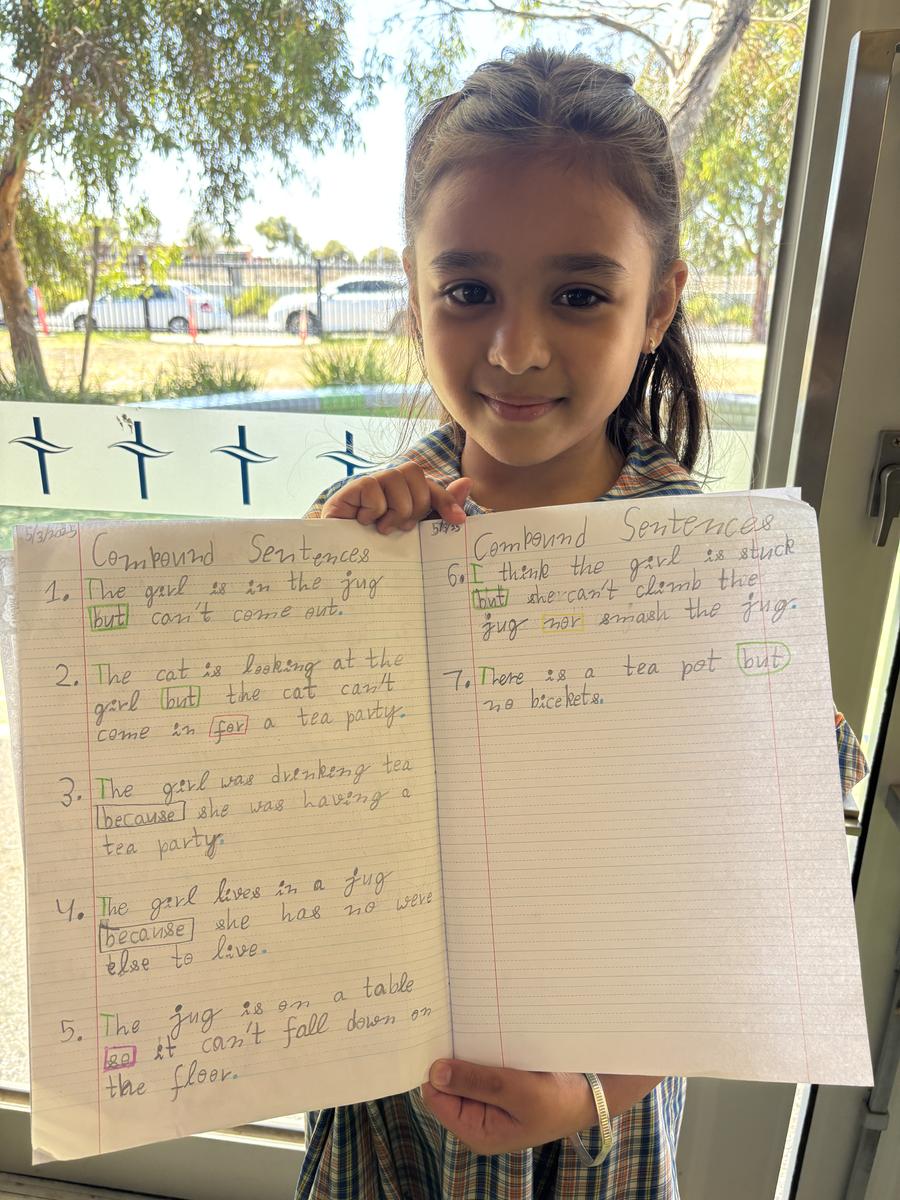 5/3/2025
Compound Sentences
1. The girl is in the jug
but can't come out.
2. The cat is looking at the
girl but the cat can't
come in for a tea party.
3. The girl was drinking tea
because she was having a
tea party.
4. The girl lives in a jug
because she has no were
else to live.
5. The jug is on a table
so it can't fall down on
the floor.
5/3/25
Compound Sentences
6. I think the girl is stuck
but she can't climb the
jug nor smash the jug.
7. There is a tea pot but
no bicekets.